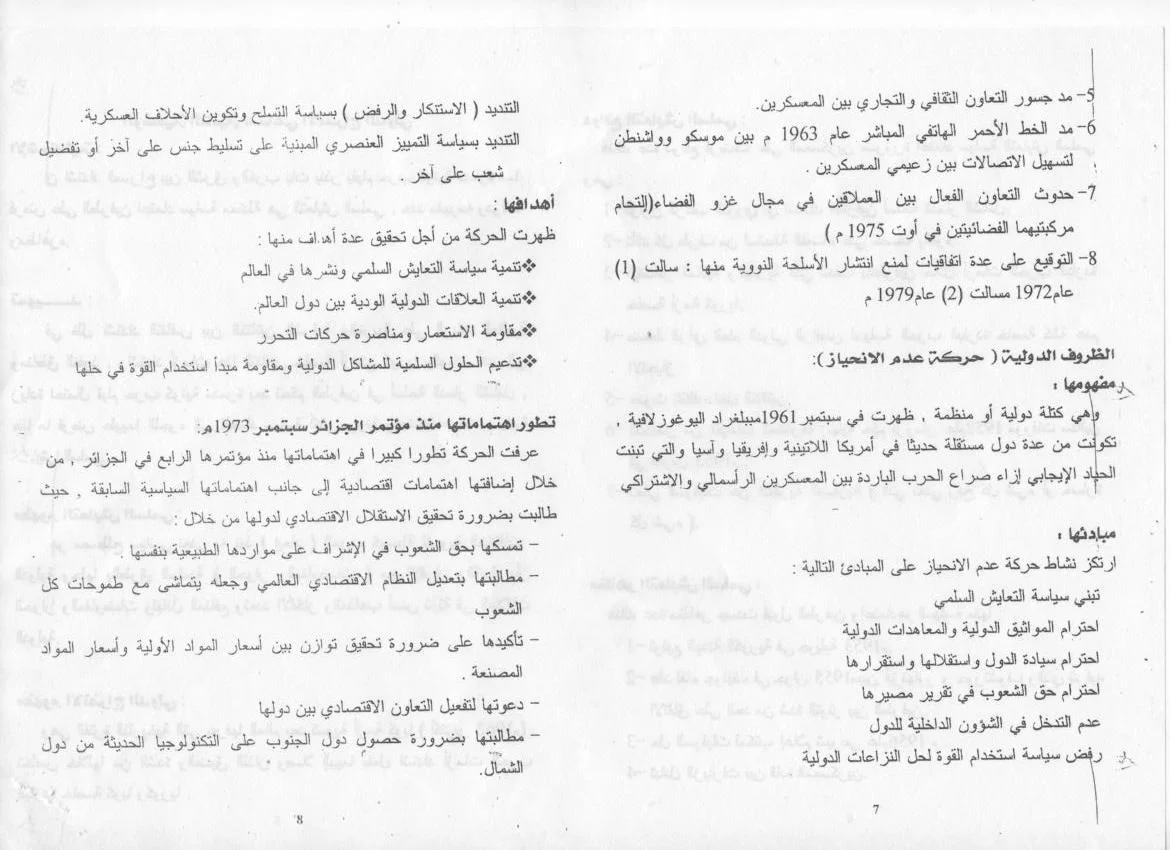 5- مد جسور التعاون الثقافي والتجاري بين المعسكرين.
6- مد الخط الأحمر الهاتفي المباشر عام 1963 م بين موسكو وواشنطن
لتسهيل الاتصالات بين زعيمي المعسكرين .
7- حدوث التعاون الفعال بين العملاقين في مجال غزو الفضاء(التحام
مركبتيهما الفضائيتين في أوت 1975 م )
8- التوقيع على عدة اتفاقيات لمنع انتشار الأسلحة النووية منها : سالت (1)
عام1972 مسالت (2) عام1979 م
الظروف الدولية ( حركة عدم الانحياز):
مفهومها :
وهي كتلة دولية أو منظمة , ظهرت في سبتمبر 1961مببلغراد اليوغوزلافية ,
تكونت من عدة دول مستقلة حديثا في أمريكا اللاتينية وإفريقيا وآسيا والتي تبنت
الحياد الإيجابي إزاء صراع الحرب الباردة بين المعسكرين الرأسمالي والاشتراكي
مبادئها :
ارتكز نشاط حركة عدم الانحياز على المبادئ التالية :
تبني سياسة التعايش السلمي
احترام المواثيق الدولية والمعاهدات الدولية
احترام سيادة الدول واستقلالها واستقرارها
احترام حق الشعوب في تقرير مصيرها
عدم التدخل في الشؤون الداخلية للدول
رفض سياسة استخدام القوة لحل النزاعات الدولية
7
التنديد ( الاستنكار والرفض ) بسياسة التسلح وتكوين الأحلاف العسكرية.
التنديد بسياسة التمييز العنصري المبنية على تسليط جنس على آخر أو تفضيل
شعب على آخر
أهدافها :
ظهرت الحركة من أجل تحقيق عدة أهداف منها :
❖تنمية سياسة التعايش السلمي ونشرها في العالم
❖تنمية العلاقات الدولية الودية بين دول العالم.
❖مقاومة الاستعمار ومناصرة حركات التحرر
❖تدعيم الحلول السلمية للمشاكل الدولية ومقاومة مبدأ استخدام القوة في حلها
تطور اهتماماتها منذ مؤتمر الجزائر سبتمبر 1973م:
عرفت الحركة تطورا كبيرا في اهتماماتها منذ مؤتمرها الرابع في الجزائر , من
خلال إضافتها اهتمامات اقتصادية إلى جانب اهتماماتها السياسية السابقة , حيث
طالبت بضرورة تحقيق الاستقلال الاقتصادي لدولها من خلال :
- تمسكها بحق الشعوب في الإشراف على مواردها الطبيعية بنفسها
- مطالبتها بتعديل النظام الاقتصادي العالمي وجعله يتماشى مع طموحات كل
الشعوب
- تأكيدها على ضرورة تحقيق توازن بين أسعار المواد الأولية وأسعار المواد
المصنعة .
- دعوتها لتفعيل التعاون الاقتصادي بين دولها
- مطالبتها بضرورة حصول دول الجنوب على التكنولوجيا الحديثة من دول
الشمال.
8